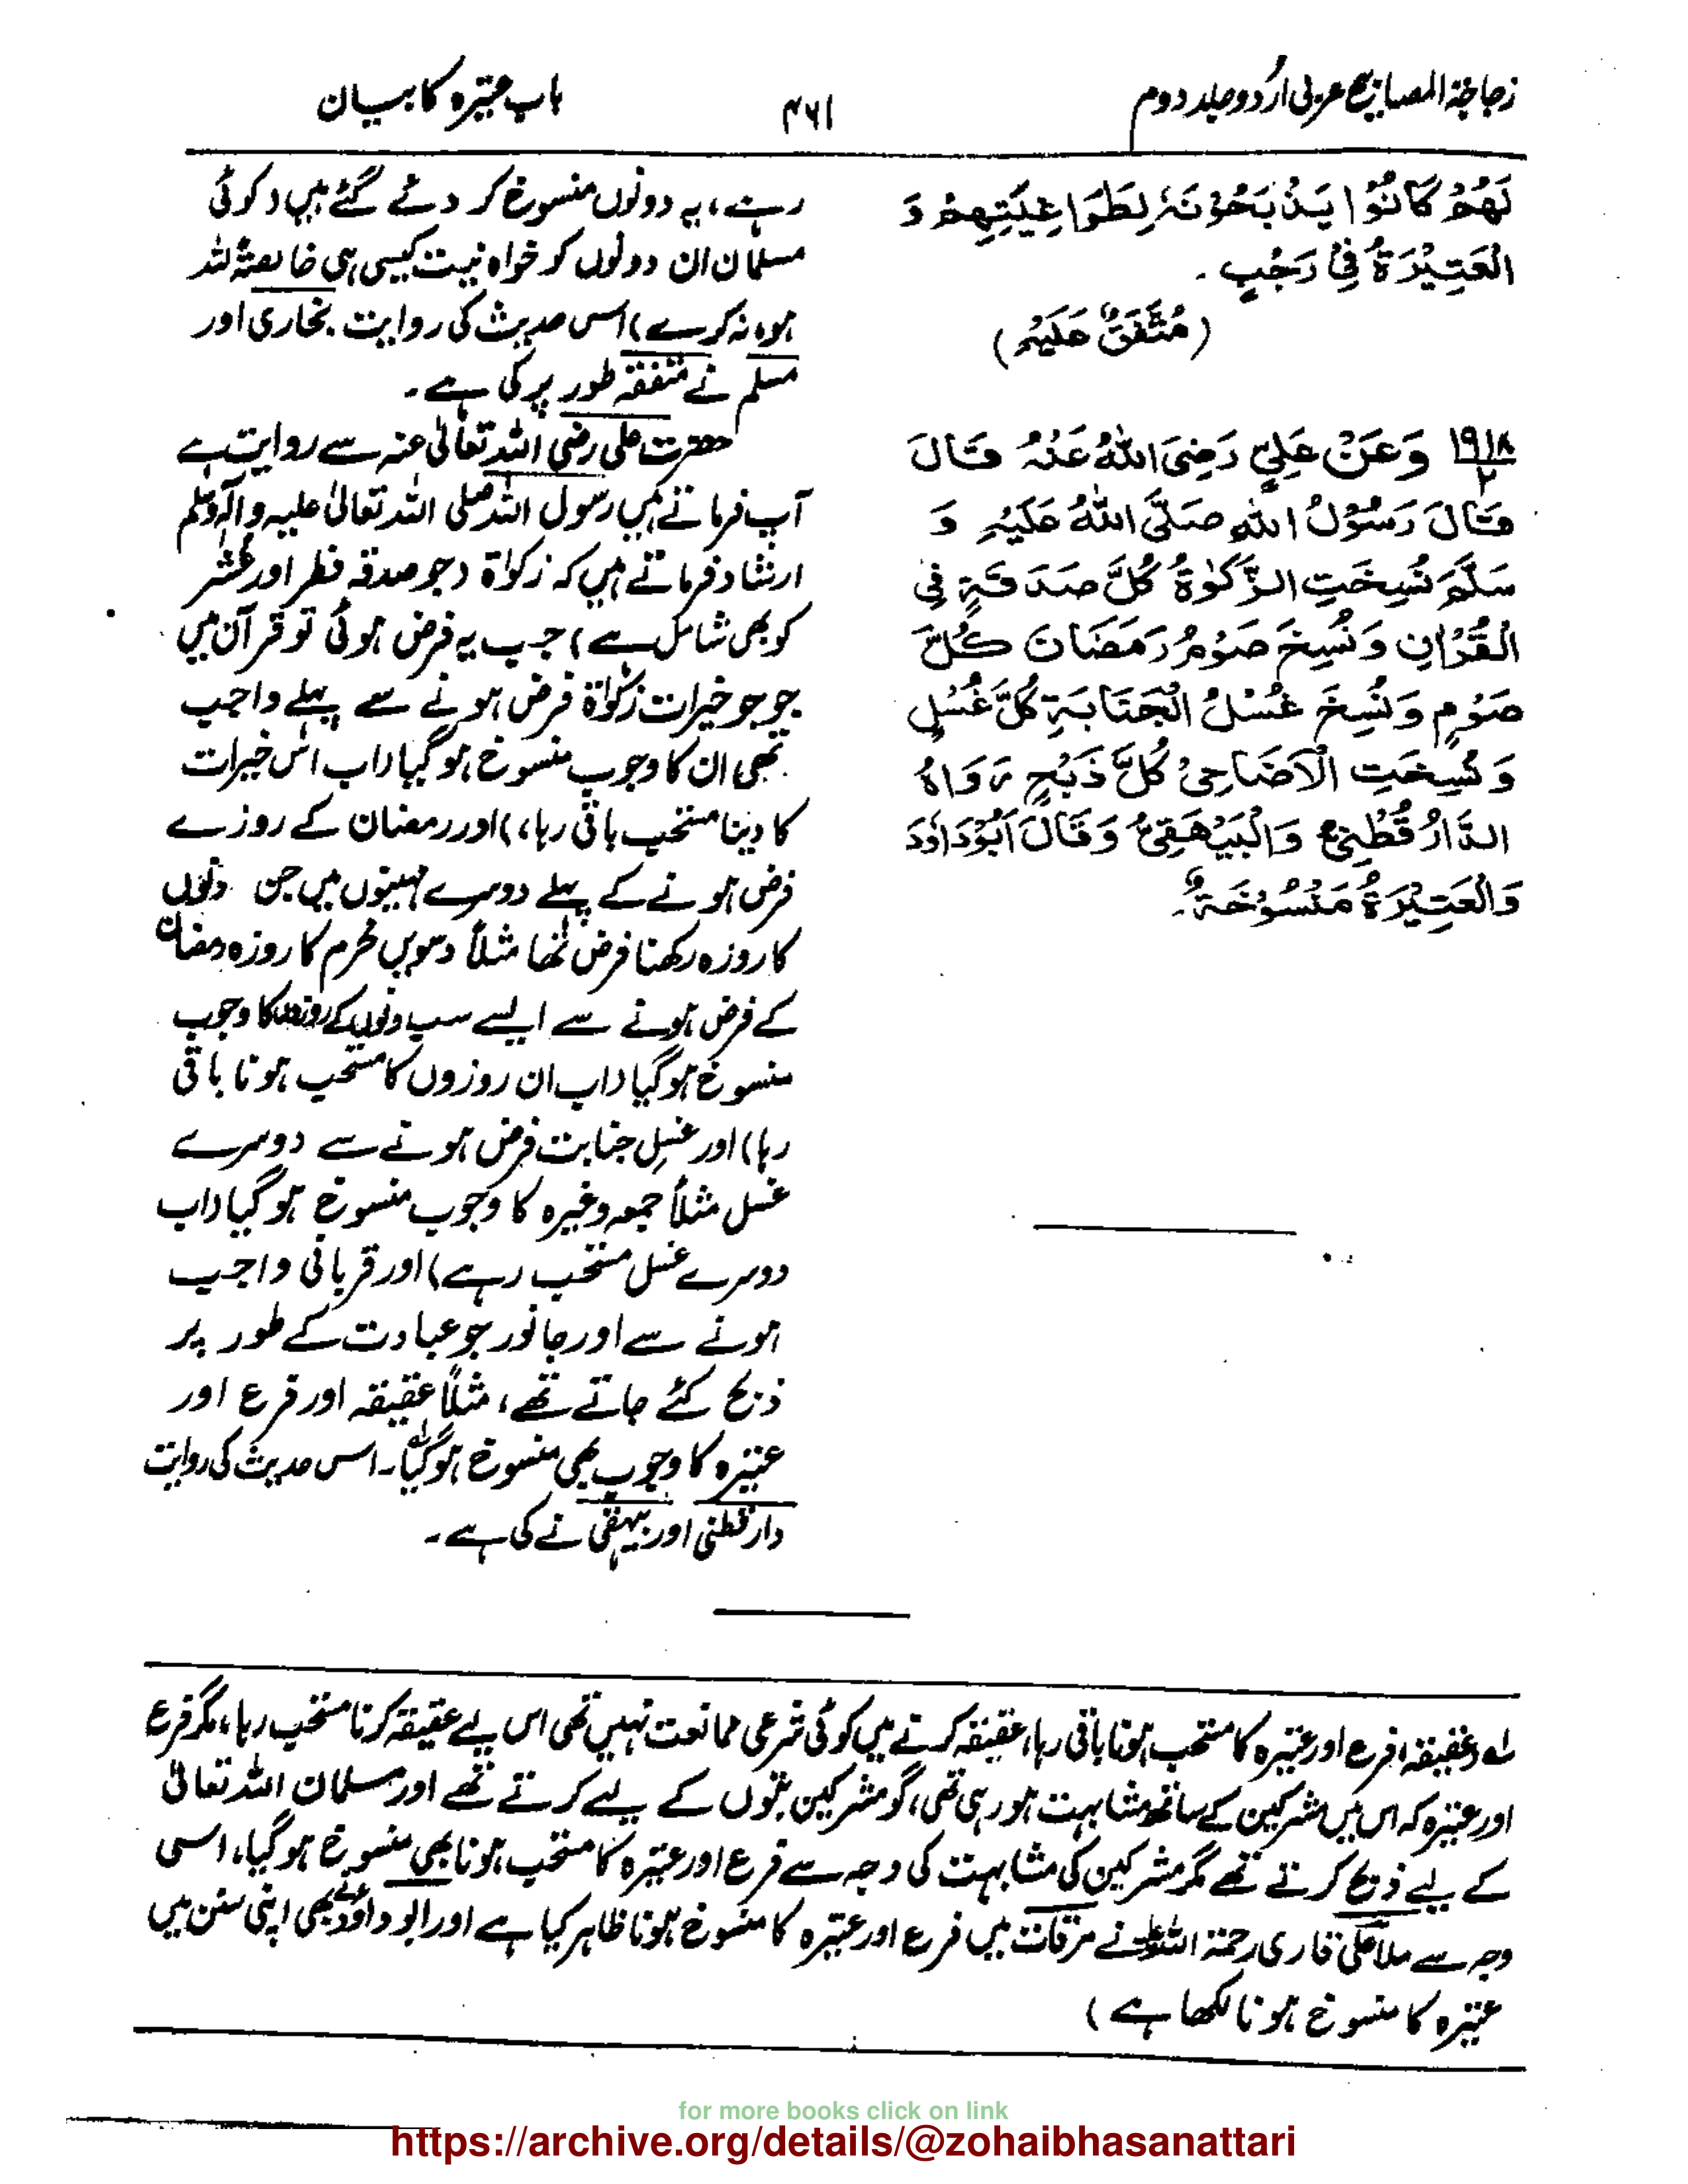 زجاجۃ المصابیح عربی اردو جلد دوم
۴۶۱
باب عتیرہ کا بیان
لَهُمْ كَانُوْا يَذْبَحُوْنَهٗ لِطَوَاغِيْتِهِمْ وَ
الْعَتِيْرَةُ فِيْ رَجَبٍ ۔
(مُتَّفَقٌ عَلَيْهِ)
۱۹۱۸/۲ وَعَنْ عَلِيٍّ رَضِيَ اللّٰهُ عَنْهُ قَالَ
قَالَ رَسُوْلُ اللّٰهِ صَلَّى اللّٰهُ عَلَيْهِ وَ
سَلَّمَ نُسِخَتِ الزَّكٰوةُ كُلَّ صَدَقَةٍ فِي
الْقُرْاٰنِ وَنُسِخَ صَوْمُ رَمَضَانَ كُلَّ
صَوْمٍ وَنُسِخَ غُسْلُ الْجَنَابَةِ كُلَّ غُسْلٍ
وَنُسِخَتِ الْاَضَاحِيْ كُلَّ ذَبْحٍ رَوَاهُ
الدَّارُ قُطْنِيُّ وَالْبَيْهَقِيُّ وَقَالَ اَبُوْدَاوٗدَ
وَالْعَتِيْرَةُ مَنْسُوْخَةٌ۔
رہے، یہ دونوں منسوخ کر دئے گئے ہیں (کوئی
مسلمان ان دونوں کو خواہ نیت کیسی ہی خالصۃً للہ
ہو، نہ کرے) اس حدیث کی روایت بخاری اور
مسلم نے متفقہ طور پر کی ہے۔
حضرت علی رضی اللہ تعالیٰ عنہ سے روایت ہے
آپ فرماتے ہیں رسول اللہ صلی اللہ تعالیٰ علیہ وآلہ وسلم
ارشاد فرماتے ہیں کہ زکوٰۃ (جو صدقہ فطر اور عشر
کو بھی شامل ہے) جب یہ فرض ہوئی تو قرآن میں
جو جو خیرات زکوٰۃ فرض ہونے سے پہلے واجب
تھی ان کا وجوب منسوخ ہو گیا (اب اس خیرات
کا دینا مستحب باقی رہا،) اور رمضان کے روزے
فرض ہونے کے پہلے دوسرے مہینوں میں جن دنوں
کا روزہ رکھنا فرض تھا مثلاً دسویں محرم کا روزہ رمضان
کے فرض ہونے سے ایسے سب دنوں کے روزوں کا وجوب
منسوخ ہو گیا (اب ان روزوں کا مستحب ہونا باقی
رہا) اور غسلِ جنابت فرض ہونے سے دوسرے
غسل مثلاً جمعہ وغیرہ کا وجوب منسوخ ہو گیا (اب
دوسرے غسل مستحب رہے) اور قربانی واجب
ہونے سے اور جانور جو عبادت کے طور پر
ذبح کئے جاتے تھے، مثلاً عقیقہ اور فرع اور
عتیرہ کا وجوب بھی منسوخ ہو گیا۔ اس حدیث کی روایت
دارقطنی اور بیہقی نے کی ہے۔
لہ (عقیقہ، فرع اور عتیرہ کا مستحب ہونا باقی رہا، عقیقہ کرنے میں کوئی شرعی ممانعت نہیں تھی اس لیے عقیقہ کرنا مستحب رہا، مگر فرع
اور عتیرہ کہ اس میں مشرکین کے ساتھ مشابہت ہو رہی تھی، گو مشرکین بتوں کے لیے کرتے تھے اور مسلمان اللہ تعالیٰ
کے لیے ذبح کرتے تھے مگر مشرکین کی مشابہت کی وجہ سے فرع اور عتیرہ کا مستحب ہونا بھی منسوخ ہو گیا، اسی
وجہ سے ملا علی قاری رحمۃ اللہ علیہ نے مرقات میں فرع اور عتیرہ کا منسوخ ہونا ظاہر کیا ہے اور ابو داؤد نے بھی اپنی سنن میں
عتیرہ کا منسوخ ہونا لکھا ہے)
for more books click on link
https://archive.org/details/@zohaibhasanattari